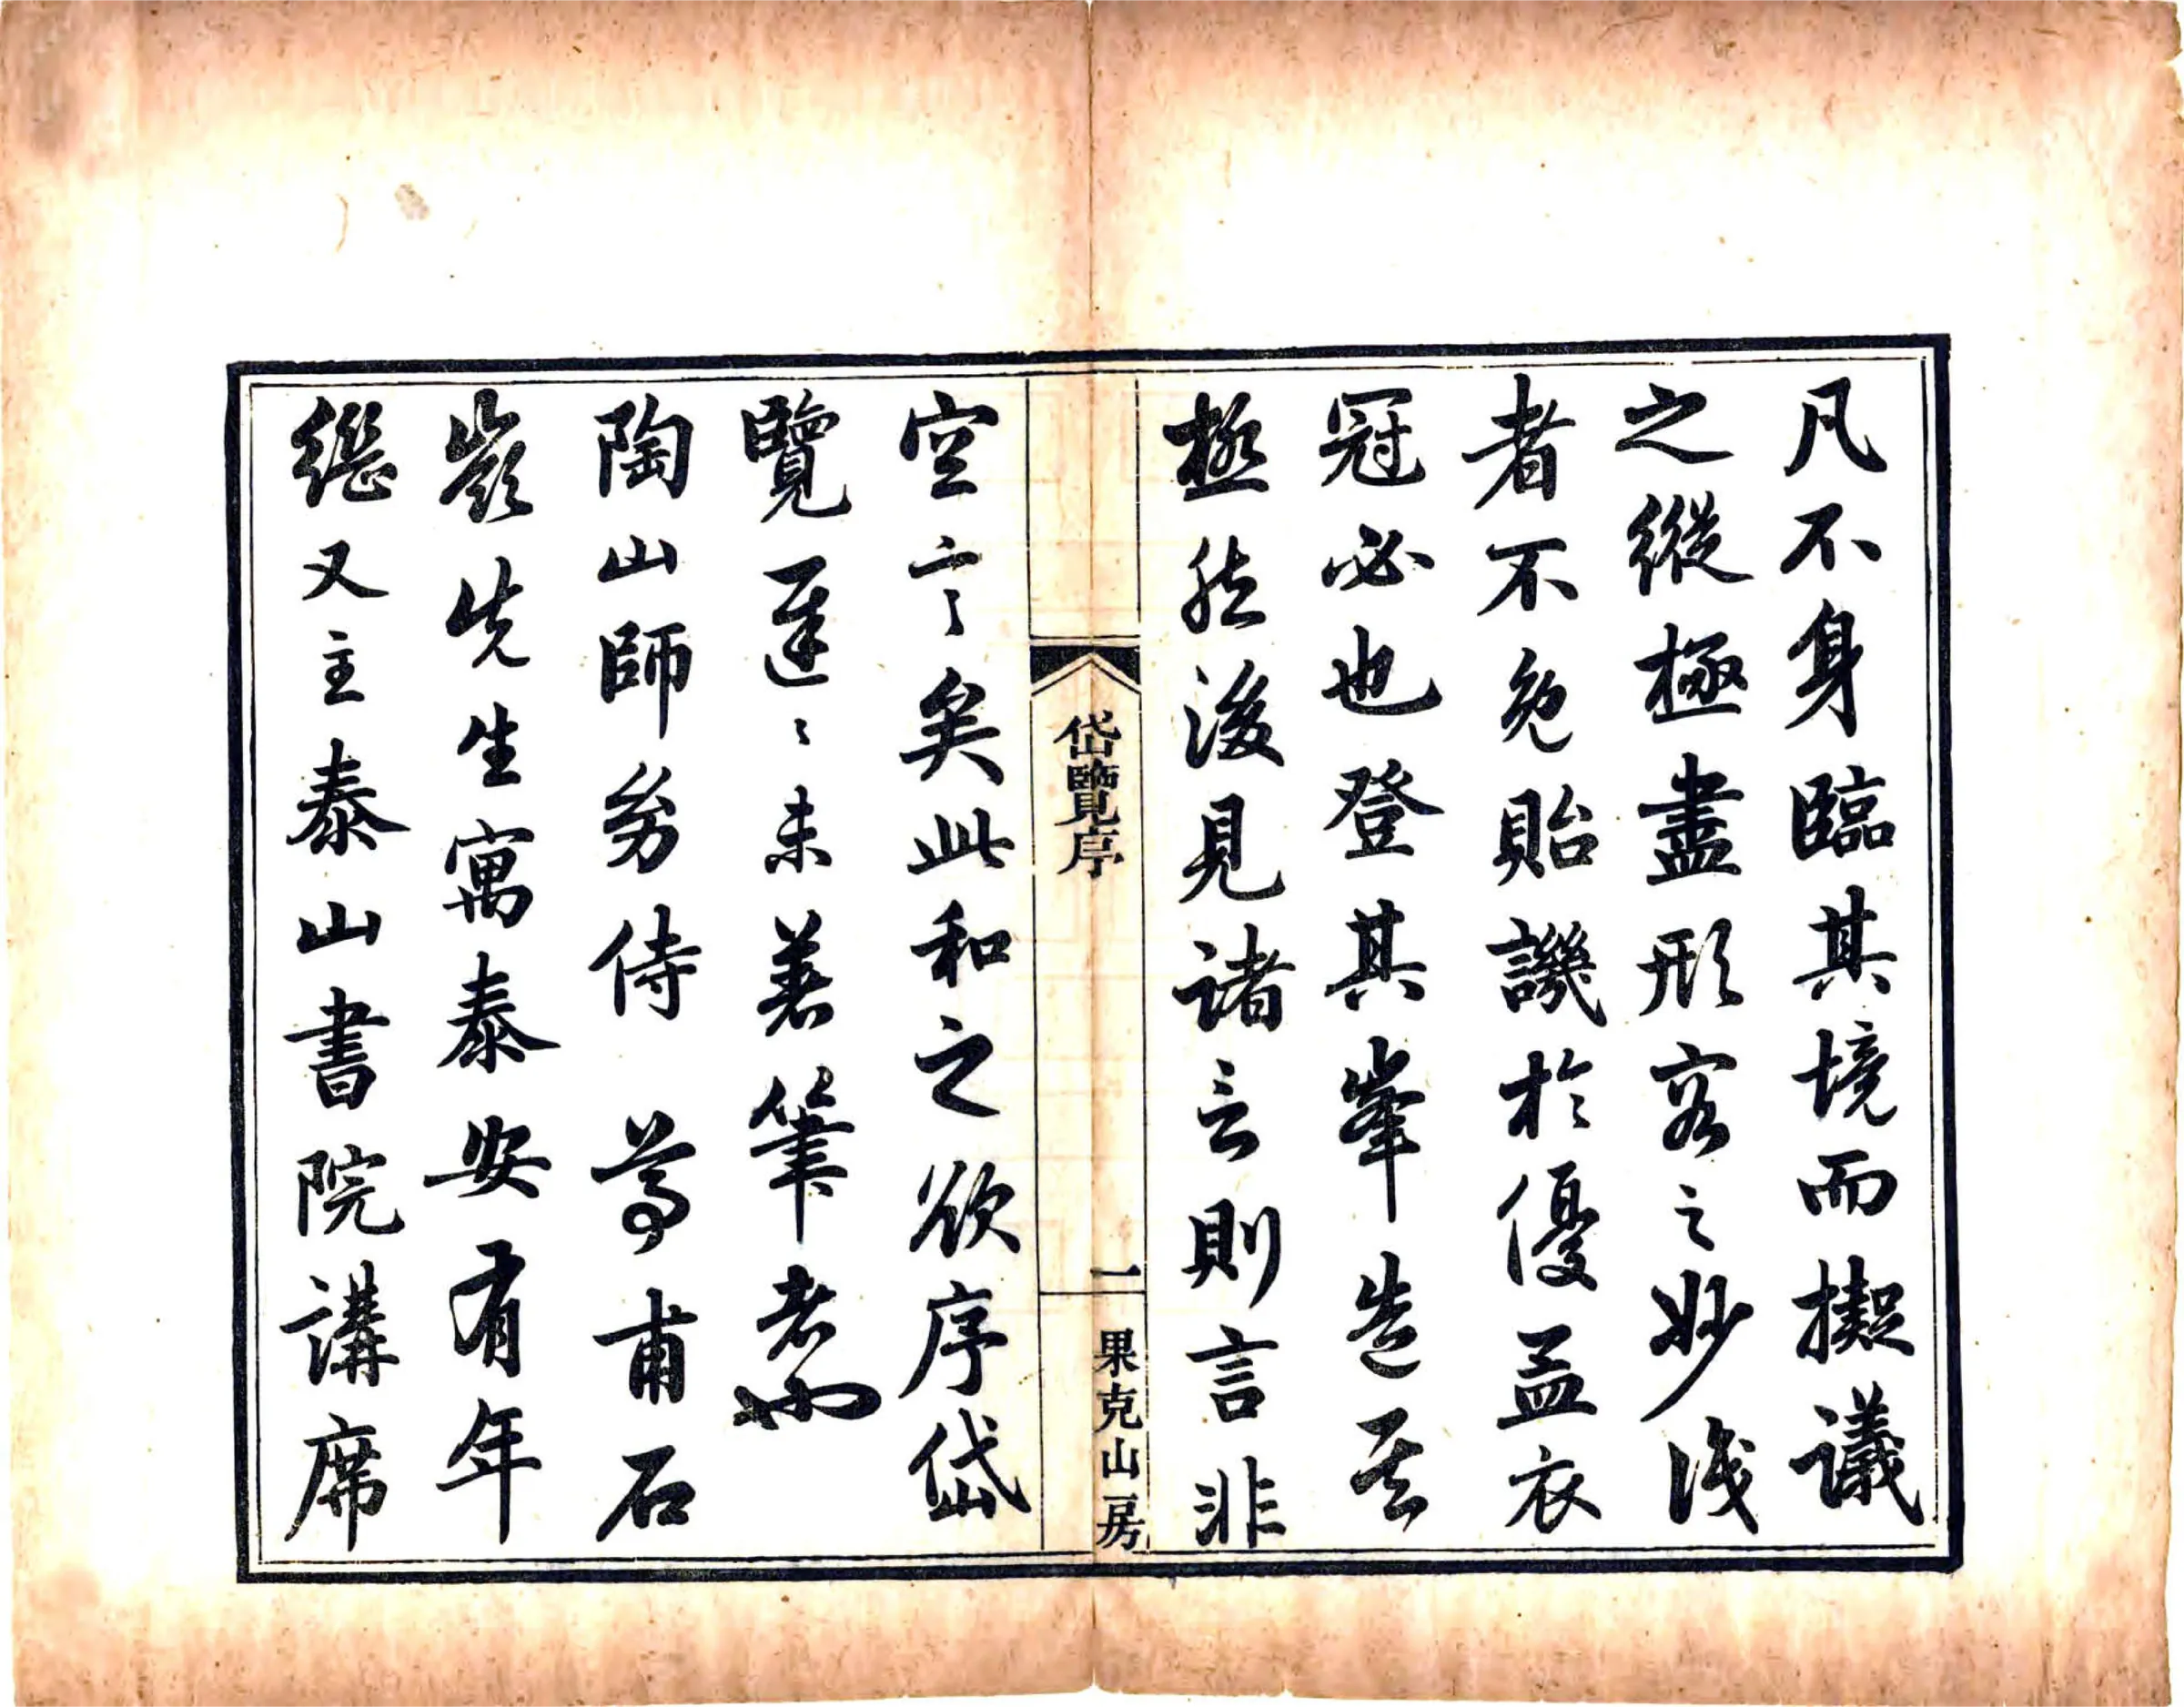 凡不身臨其境而擬議
之縱極盡形容之妙識
者不免貽譏於優孟衣
冠必也登其峯造其
極然後見諸言則言非
岱覽序
一
果克山房
空言矣此和之欲序岱
覽遲〻未着筆者也
陶山師幼侍 尊甫石
嶺先生寓泰安有年
繼又主泰山書院講席